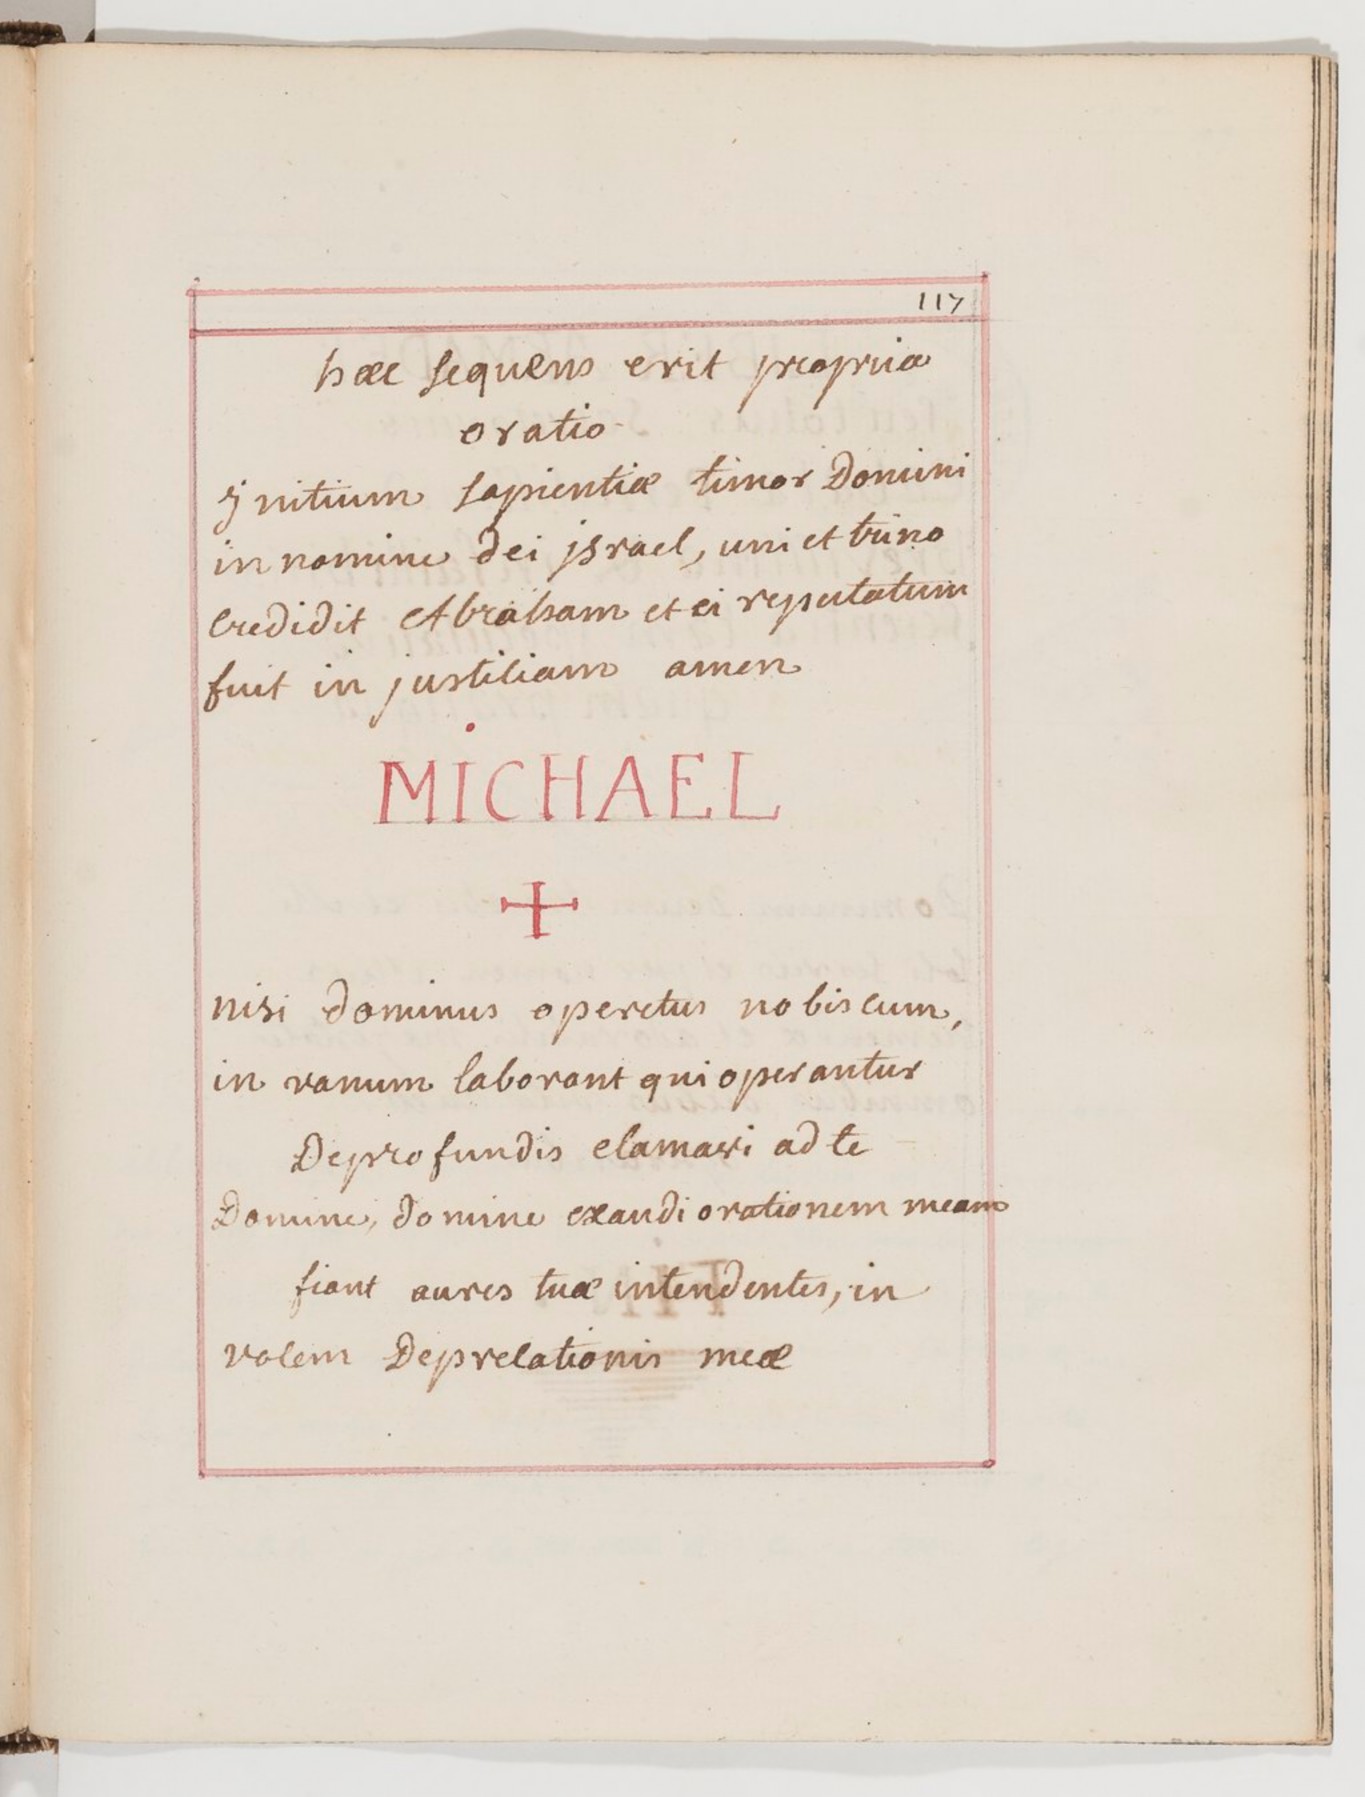 117
hæc sequens erit propriæ
oratio
initium sapientiæ timor Domini
in nomine dei israel, uni et trino
Credidit Abraham et ei reputatum
fuit in justitiam amen
MICHAEL
+
nisi dominus operetur nobiscum,
in vanum laborant qui operantur
De profundis clamavi ad te
Domine, domine exaudi orationem meam
fiant aures tuæ intendentes, in
vocem Deprelationis meæ